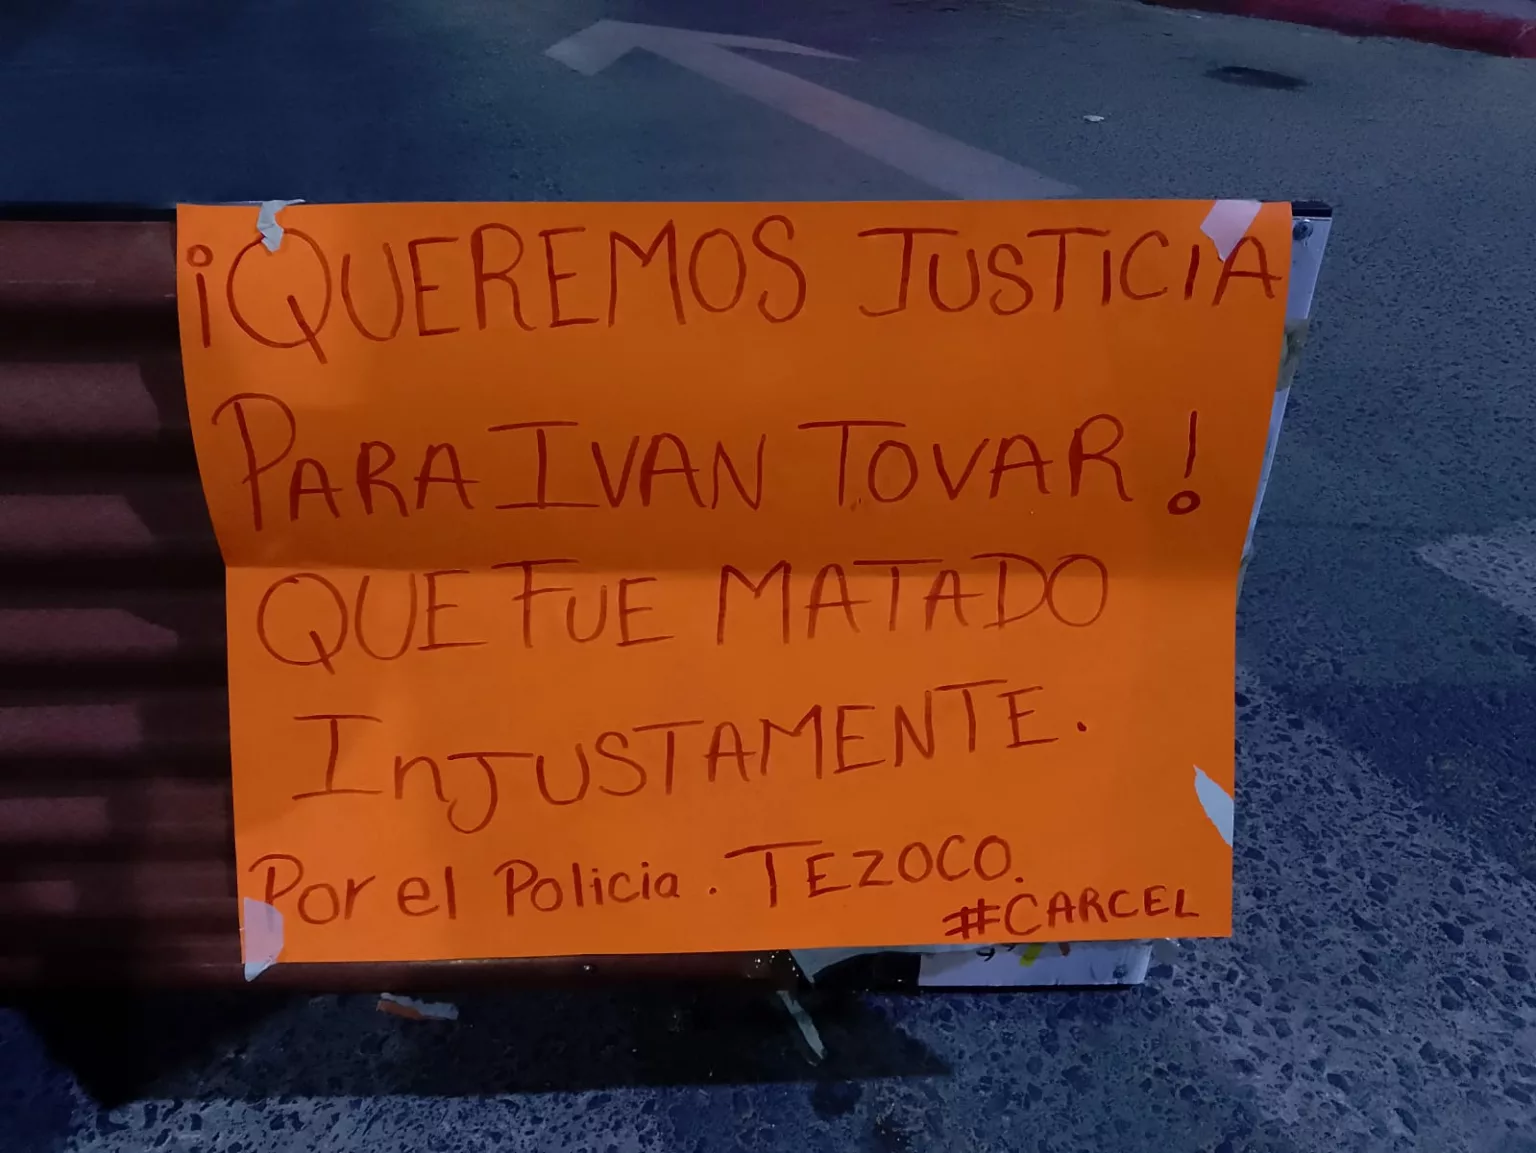 ¡QUEREMOS JUSTICIA
PARA IVAN TOVAR!
QUE FUE MATADO
InJUSTAMENTE.
Por el Policia. TEZOCO.
#CARCEL